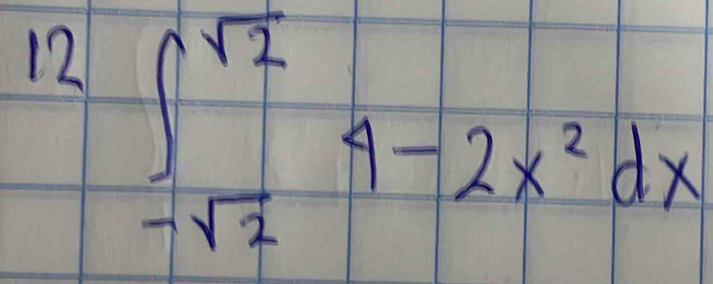 12 ∫_{-√2}^{√2} 4 - 2x² dx